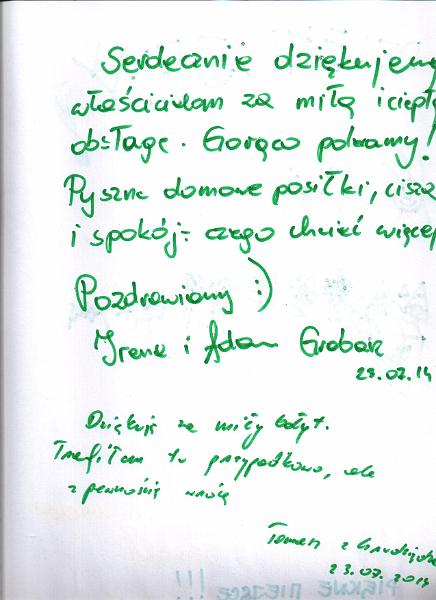 Serdecznie dziękujemy
właścicielom za miłą i ciepłą
obsługę. Gorąco polecamy!
Pyszne domowe posiłki, cisza
i spokój - czego chcieć więcej
Pozdrawiamy :)
Irena i Adam Grobar
23.07.14
Dziękuję za miły pobyt.
Trafiłam tu przypadkowo, ale
z pewnością wrócę
z Grudziądza
23.07.2014
PIĘKNE MIEJSCE !!!